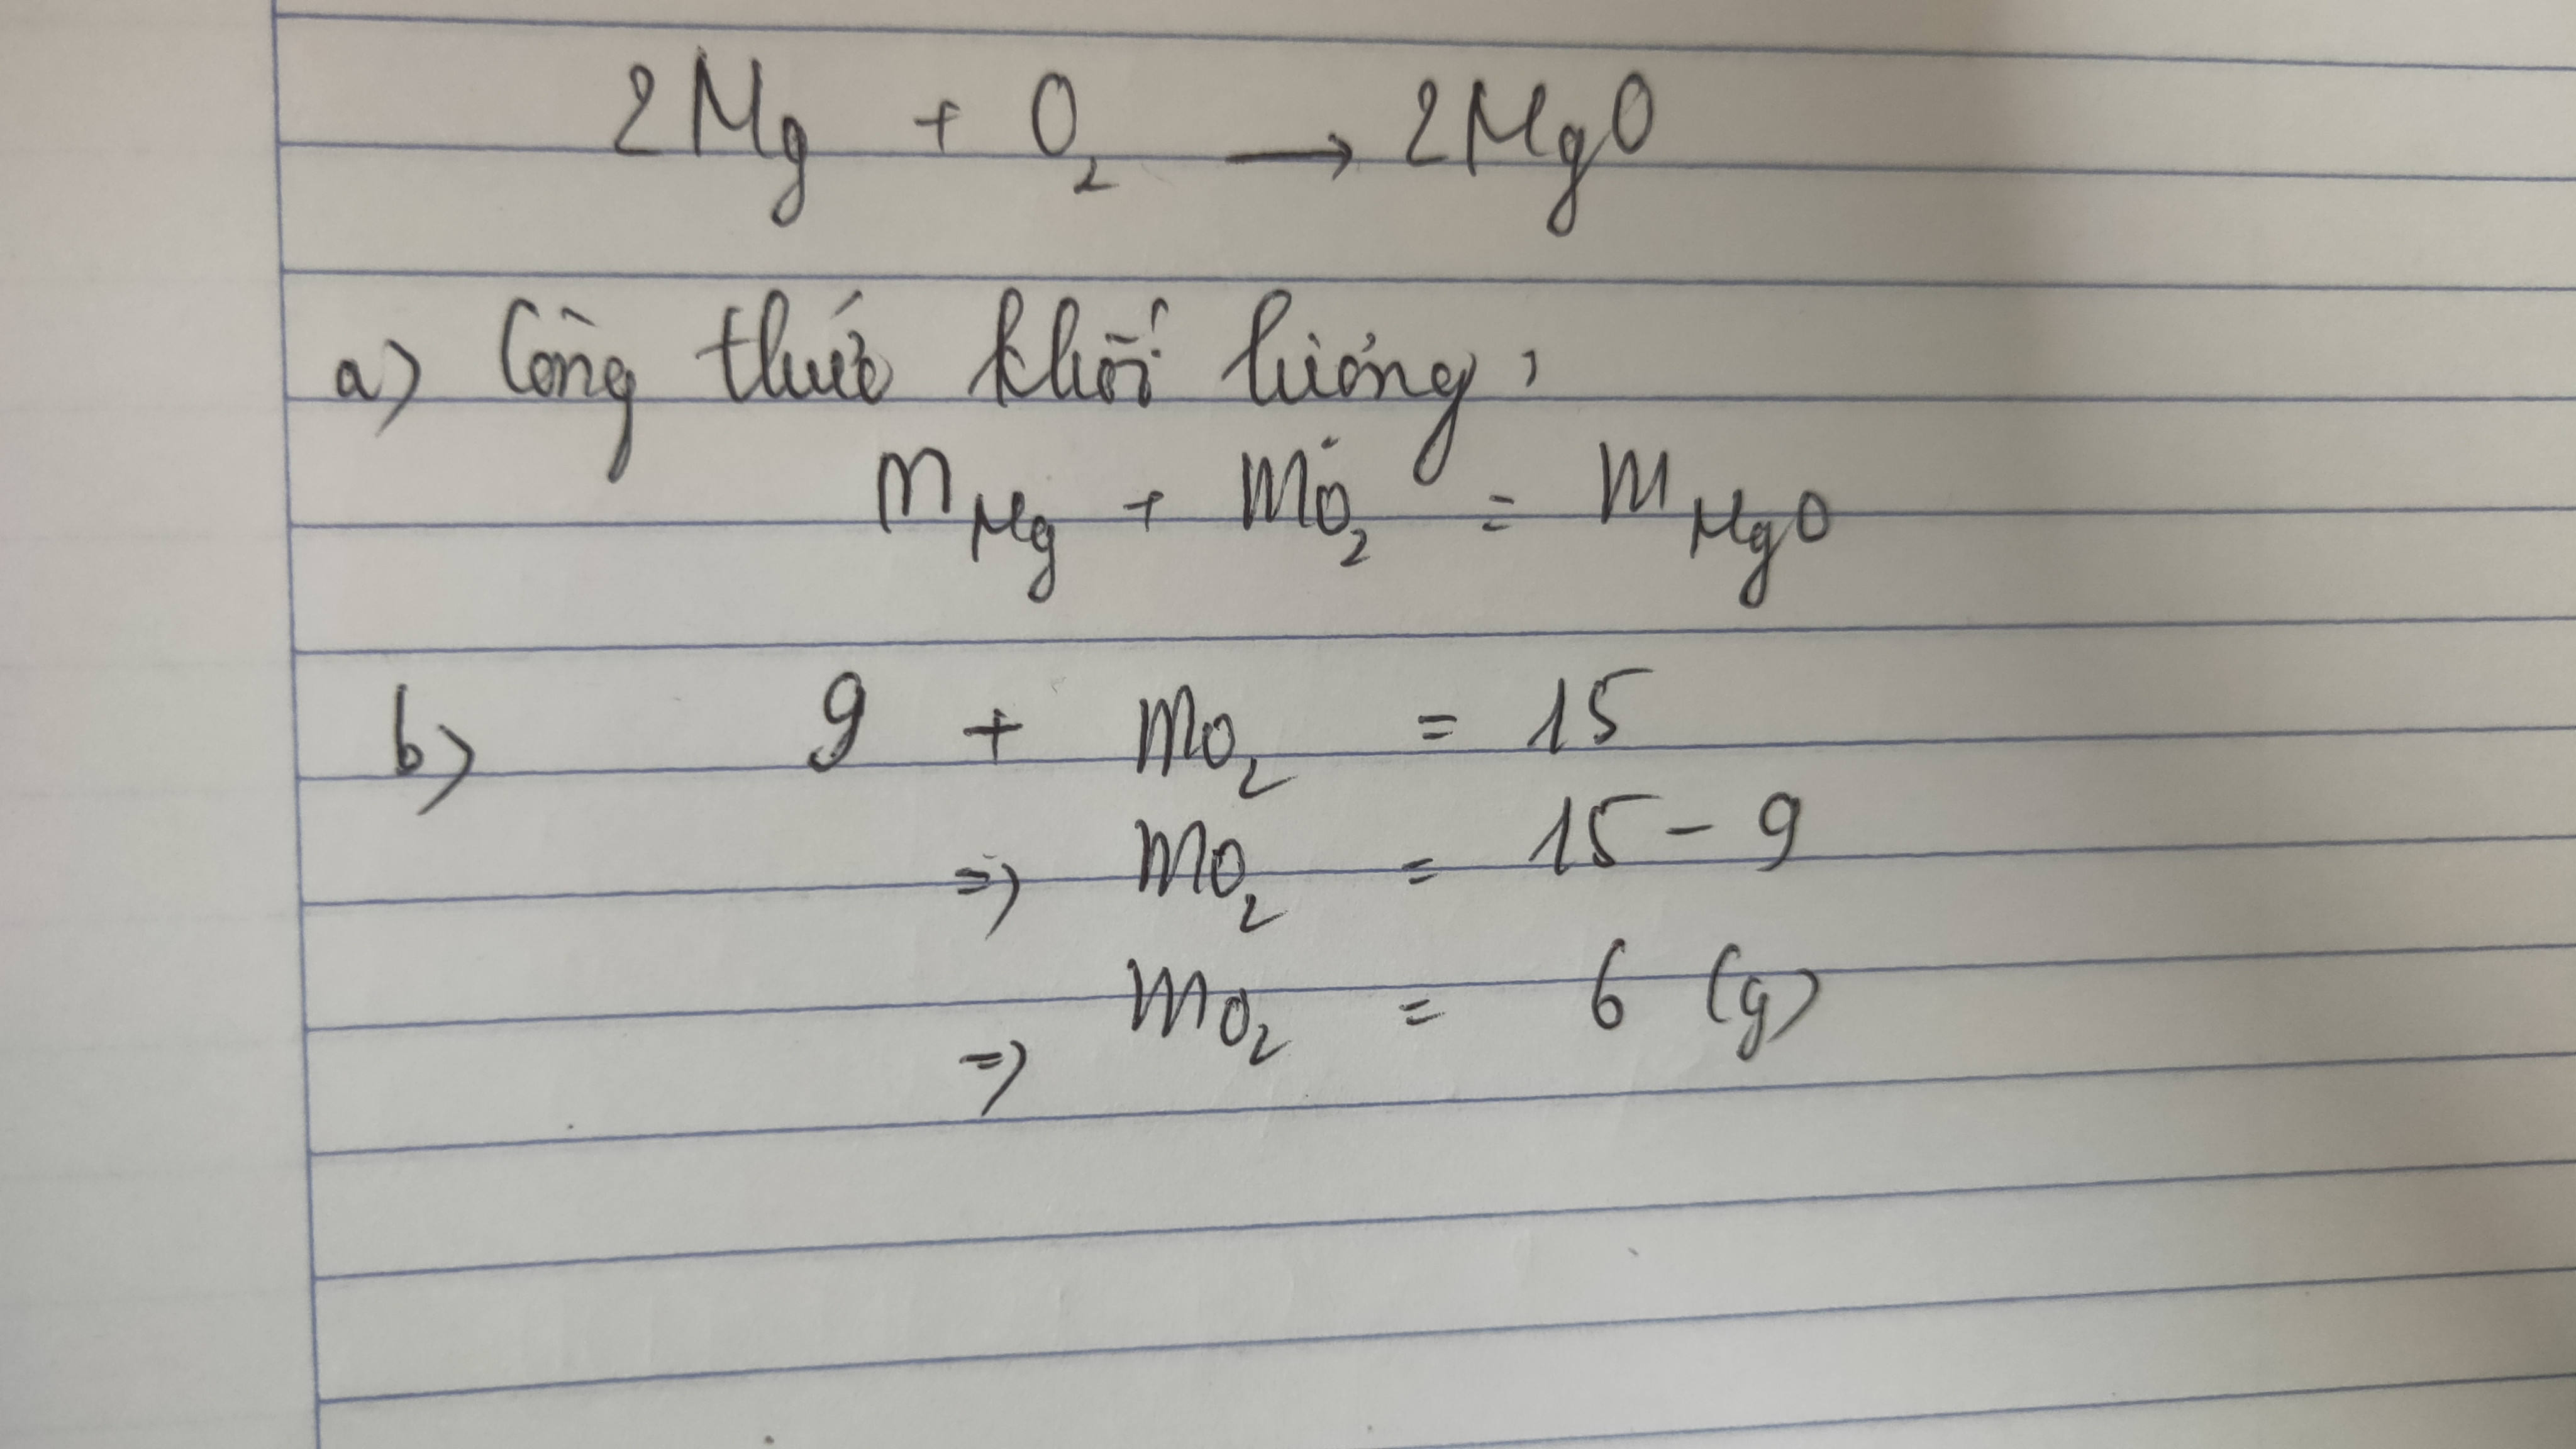 2Mg + O₂ → 2MgO
a) Công thức khối lượng:
m_Mg + m_O₂ = m_MgO
b) 9 + m_O₂ = 15
=> m_O₂ = 15 - 9
=> m_O₂ = 6 (g)